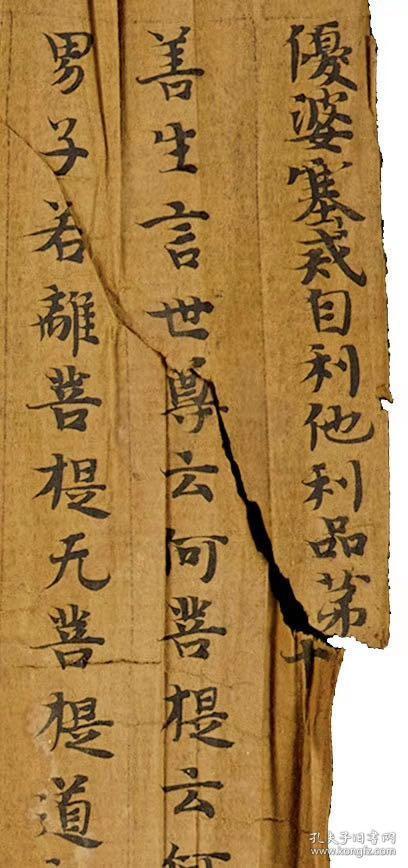 優婆塞戒自利他利品苐十
善生言世尊云何菩提云何
男子若離菩提无菩提道
孔夫子旧书网
www.kongfz.com